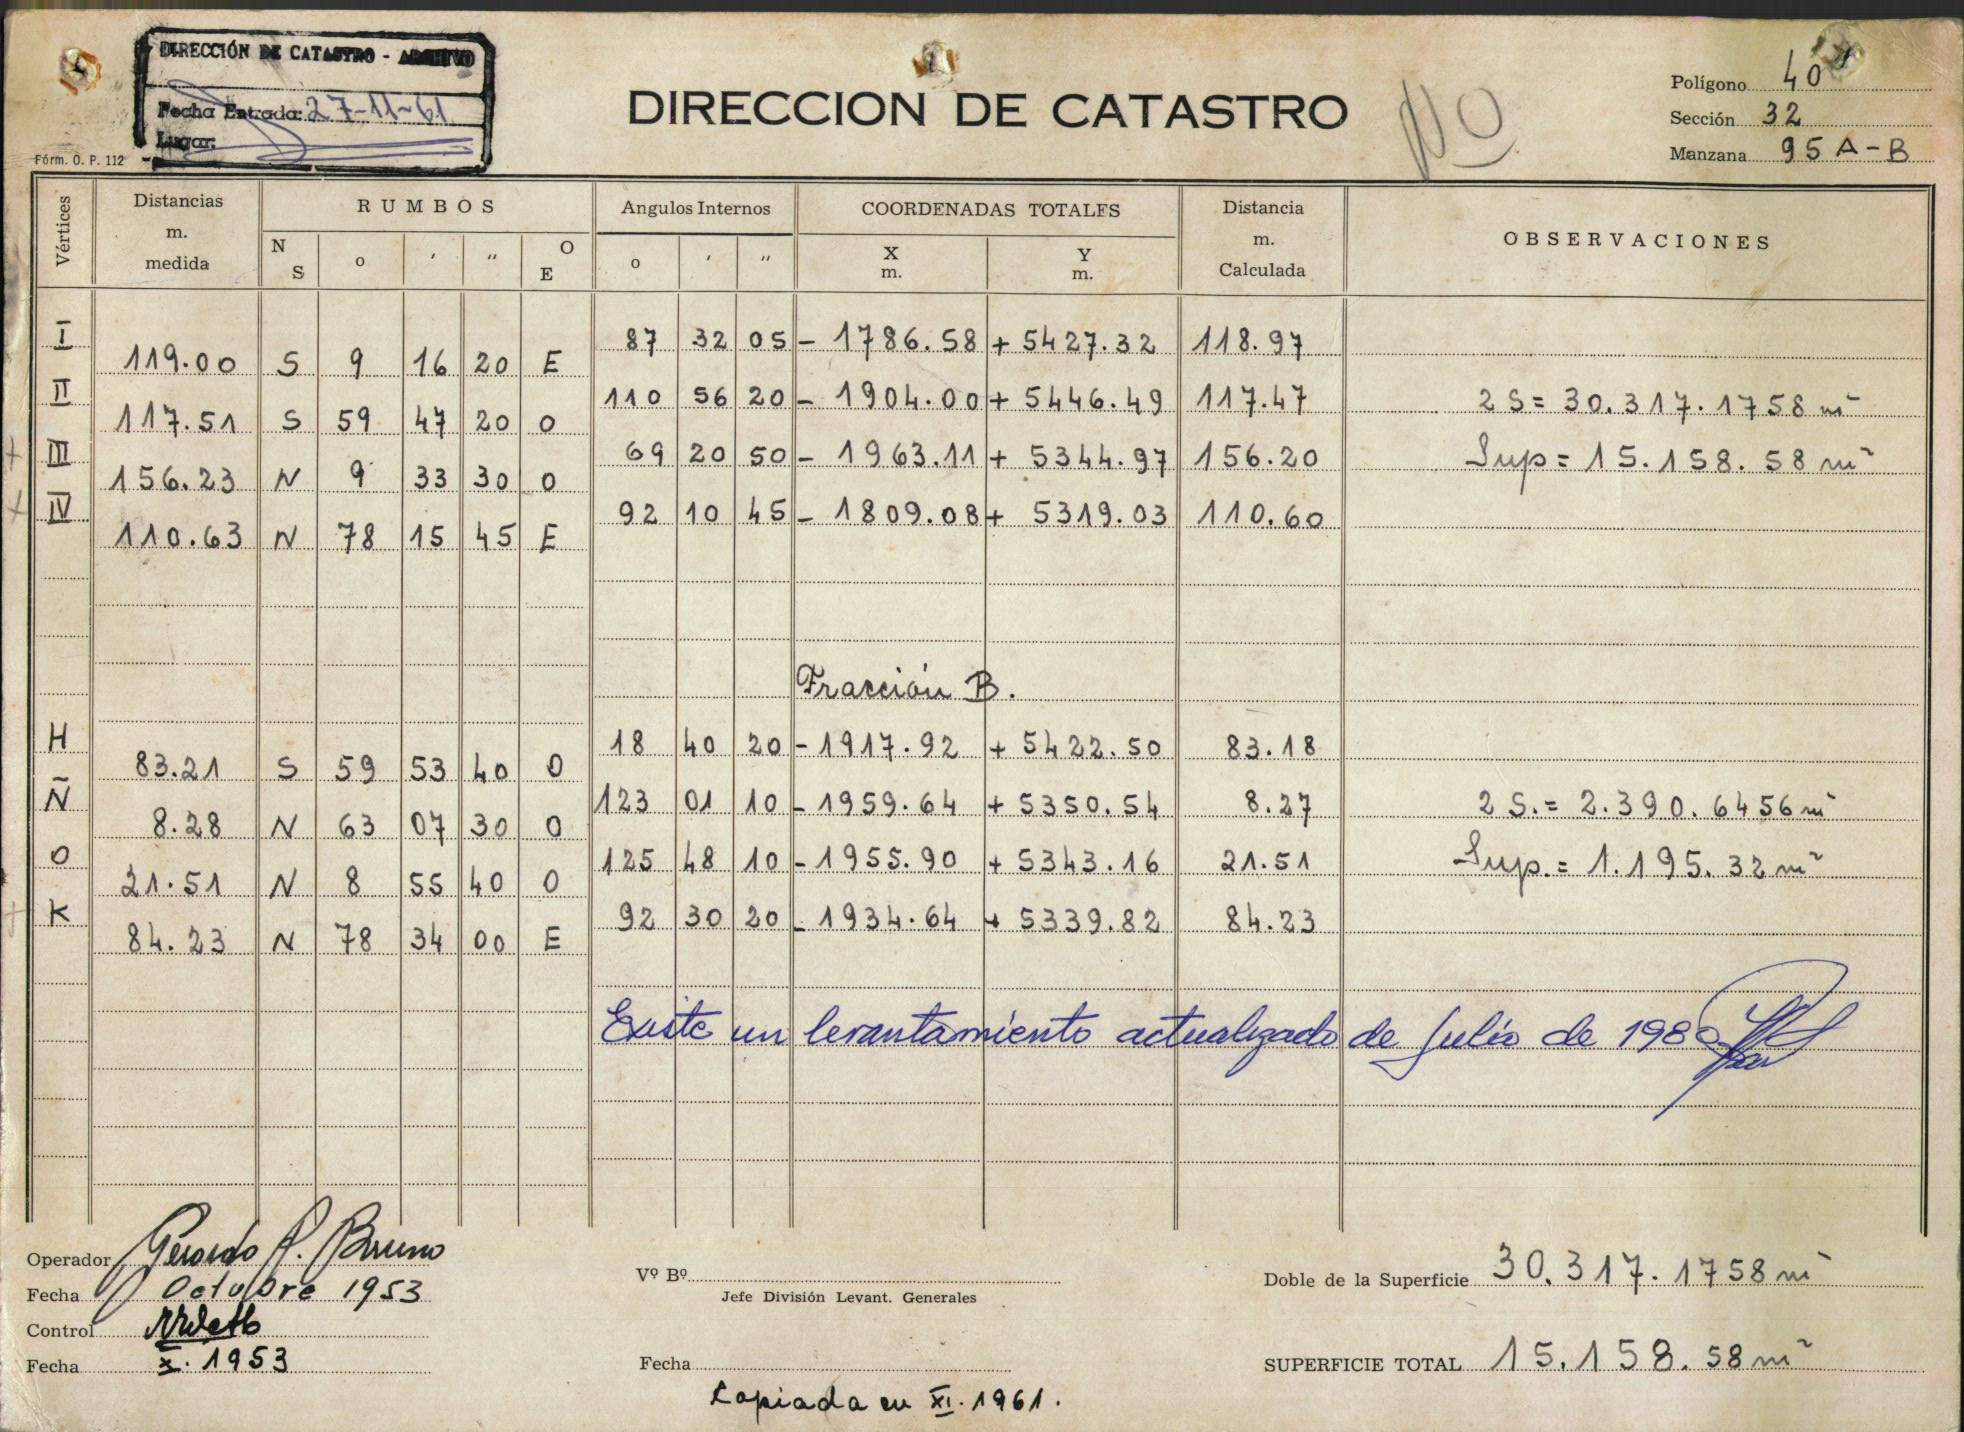 DIRECCIÓN DE CATASTRO - ARCHIVO
Fecha Entrada: 27-11-61
Lugar:
Fórm. O. P. 112
DIRECCION DE CATASTRO
NO
Polígono 40
Sección 32
Manzana 95 A-B
Vértices
Distancias m. medida
RUMBOS
N S
o
′
″
O E
Angulos Internos
o
′
″
COORDENADAS TOTALES
X m.
Y m.
Distancia m. Calculada
OBSERVACIONES
I 87 32 05 - 1786.58 + 5427.32 118.97
119.00 S 9 16 20 E
II 110 56 20 - 1904.00 + 5446.49 117.47 2 S = 30.317.1758 m²
117.51 S 59 47 20 O
III 69 20 50 - 1963.11 + 5344.97 156.20 Sup = 15.158.58 m²
156.23 N 9 33 30 O
IV 92 10 45 - 1809.08 + 5319.03 110.60
110.63 N 78 15 45 E
Fracción B.
H 18 40 20 - 1917.92 + 5422.50 83.18
83.21 S 59 53 40 O
Ñ 123 01 10 - 1959.64 + 5350.54 8.27 2 S. = 2.390.6456 m²
8.28 N 63 07 30 O
O 125 48 10 - 1955.90 + 5343.16 21.51 Sup. = 1.195.32 m²
21.51 N 8 55 40 O
K 92 30 20 - 1934.64 + 5339.82 84.23
84.23 N 78 34 00 E
Existe un levantamiento actualizado de Julio de 1980
Operador Gerardo A. Bruno
Fecha Octubre 1953
Control
Fecha X. 1953
Vº Bº
Jefe División Levant. Generales
Fecha
Copiada en XI. 1961.
Doble de la Superficie 30.317.1758 m²
SUPERFICIE TOTAL 15.158.58 m²